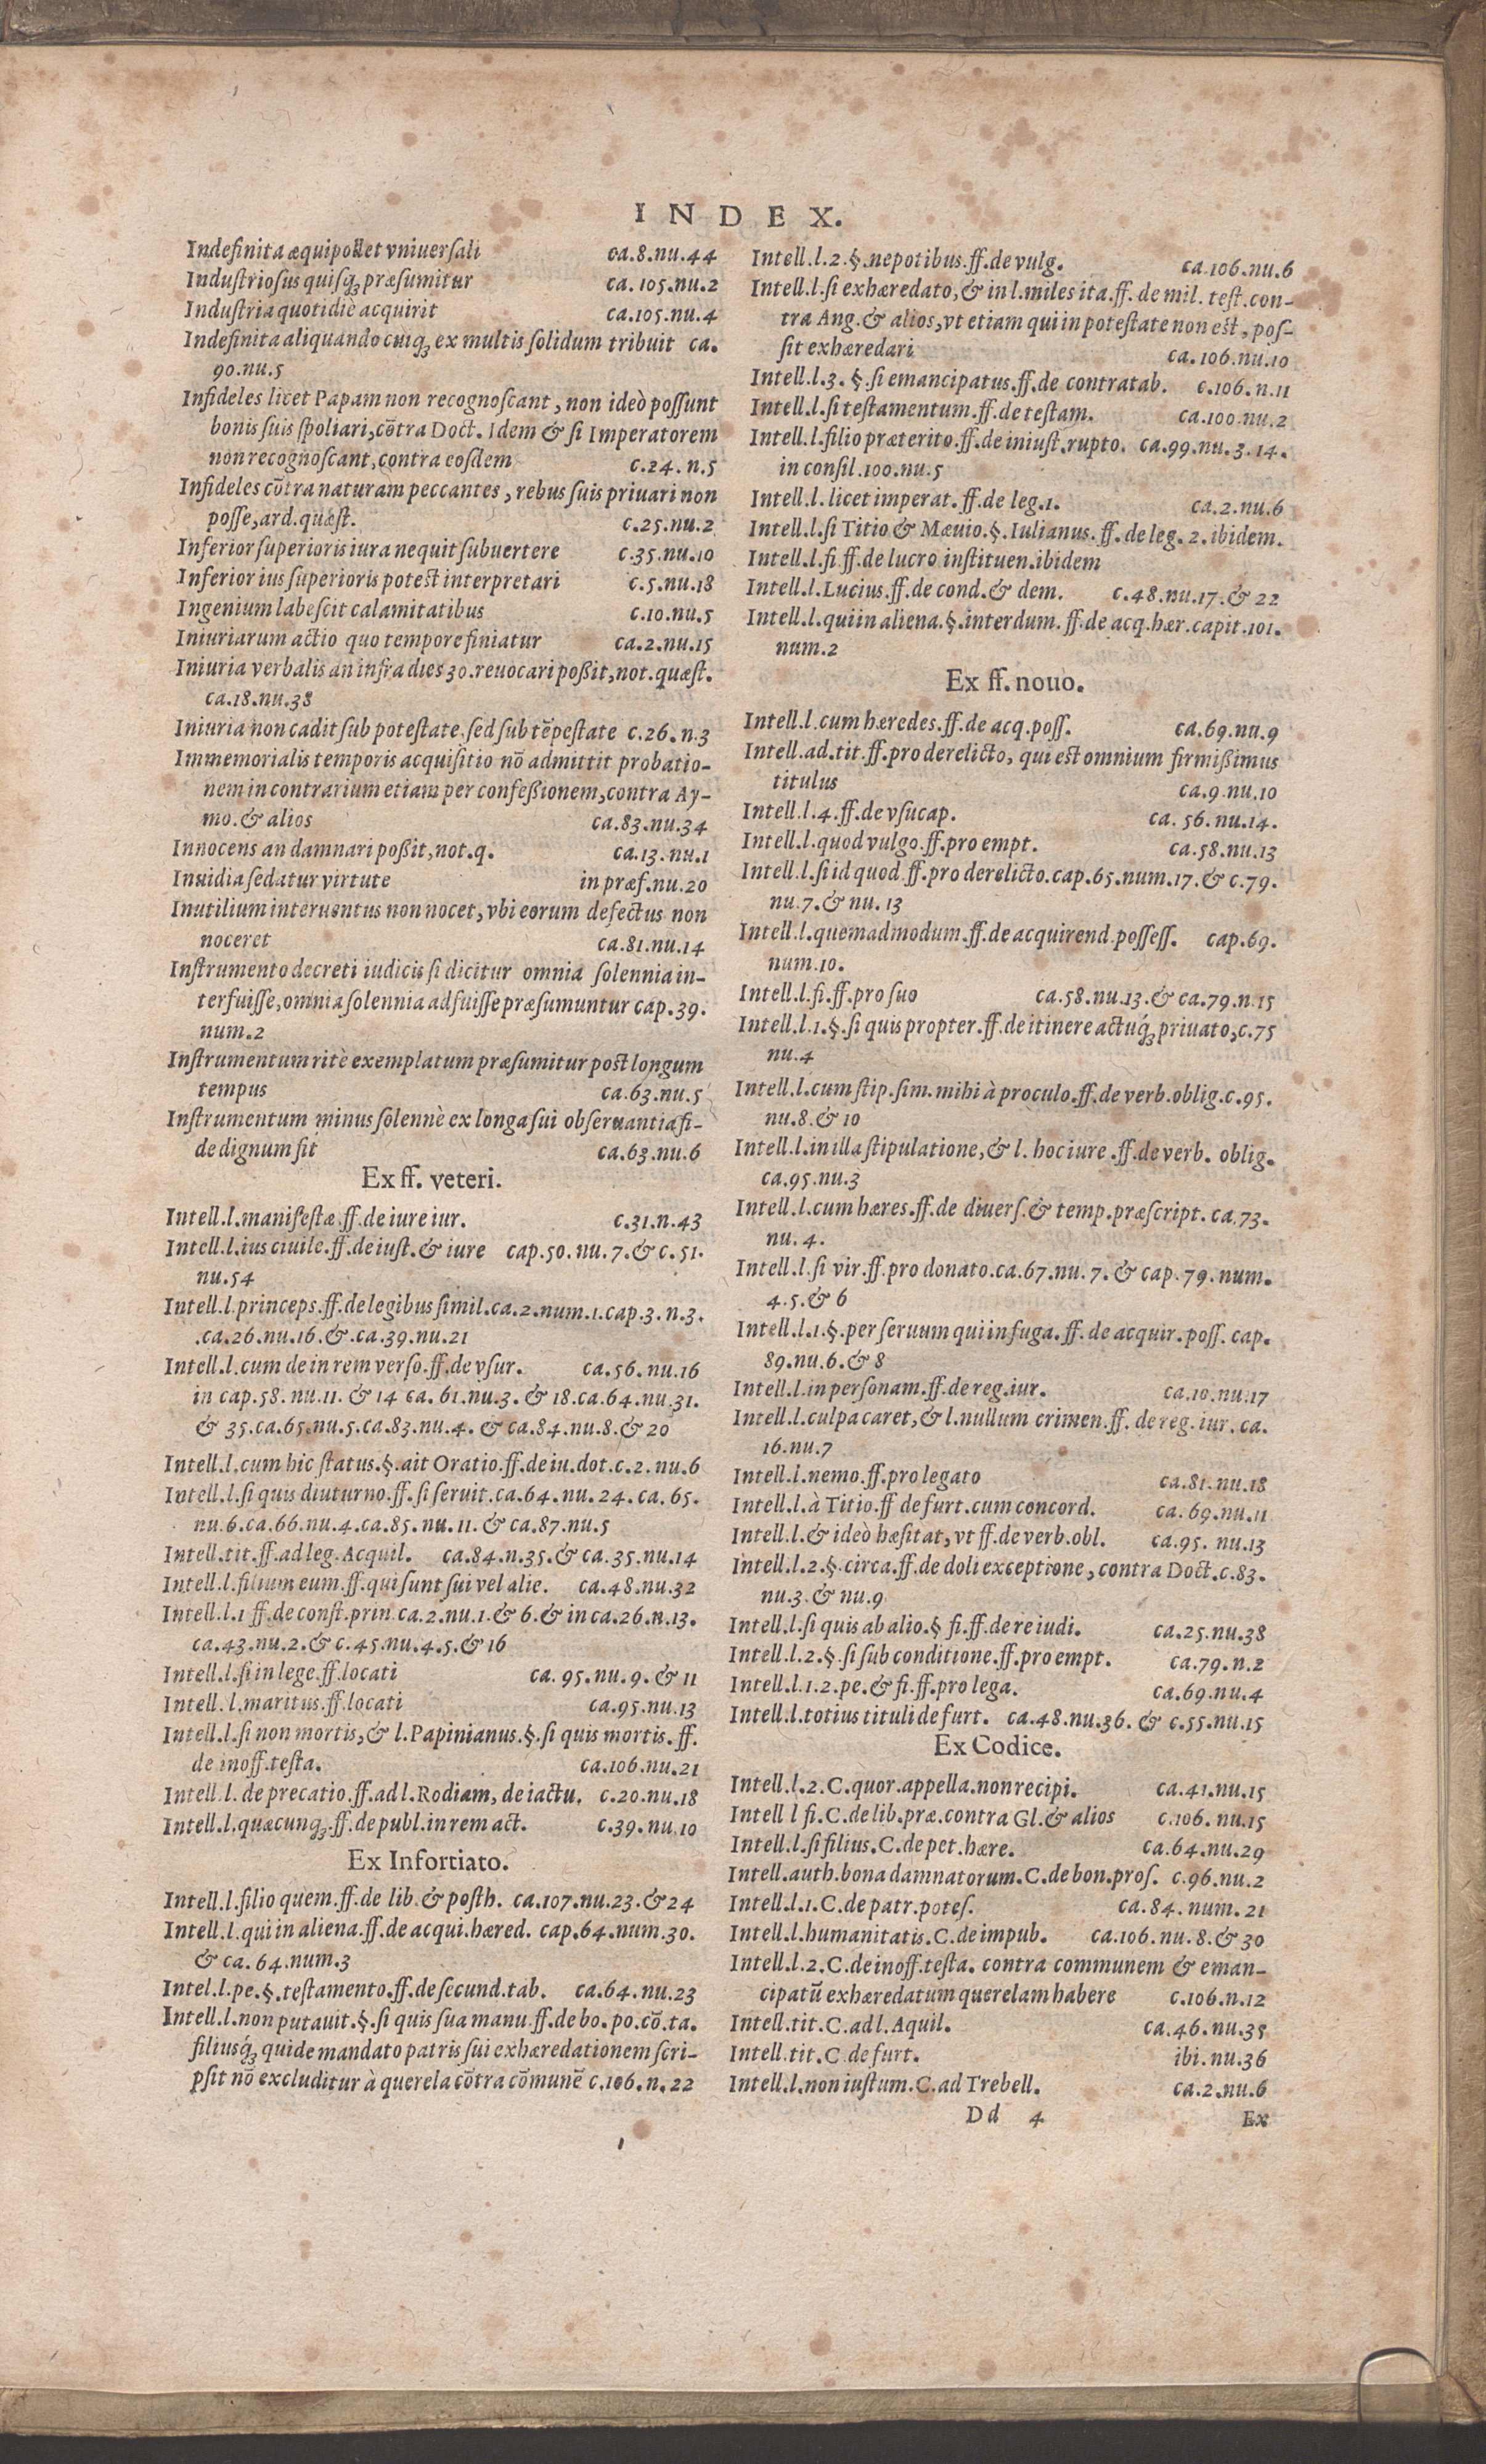 INDEX.
Indefinita æquipollet vniuerſali ca.8.nu.44
Induſtrioſus quiſqꝫ præſumitur ca.105.nu.2
Induſtria quotidiè acquirit ca.105.nu.4
Indefinita aliquando cuiqꝫ ex multis ſolidum tribuit ca.
90.nu.5
Infideles licet Papam non recognoſcant, non ideò poſſunt
bonis ſuis ſpoliari, cōtra Doct. Idem & ſi Imperatorem
non recognoſcant, contra eoſdem c.24.n.5
Infideles cōtra naturam peccantes, rebus ſuis priuari non
poſſe, ard. quæſt. c.25.nu.2
Inferior ſuperioris iura nequit ſubuertere c.35.nu.10
Inferior ius ſuperioris poteſt interpretari c.5.nu.18
Ingenium labeſcit calamitatibus c.10.nu.5
Iniuriarum actio quo tempore finiatur ca.2.nu.15
Iniuria verbalis an infra dies 30. reuocari poßit, not. quæſt.
ca.18.nu.38
Iniuria non cadit ſub poteſtate, ſed ſub tēpeſtate c.26.n.3
Immemorialis temporis acquiſitio nō admittit probatio-
nem in contrarium etiam per confeßionem, contra Ay-
mo. & alios ca.83.nu.34
Innocens an damnari poßit, not.q. ca.13.nu.1
Inuidia ſedatur virtute in præf.nu.20
Inutilium interuentus non nocet, vbi eorum defectus non
noceret ca.81.nu.14
Inſtrumento decreti iudicis ſi dicitur omnia ſolennia in-
terfuiſſe, omnia ſolennia adfuiſſe præſumuntur cap.39.
num.2
Inſtrumentum ritè exemplatum præſumitur poſt longum
tempus ca.63.nu.5
Inſtrumentum minus ſolennè ex longa ſui obſeruantia fi-
de dignum ſit ca.63.nu.6
Ex ff. veteri.
Intell.l.manifeſtæ.ff.de iure iur. c.31.n.43
Intell.l.ius ciuile.ff.de iuſt.& iure cap.50.nu.7.& c.51.
nu.54
Intell.l.princeps.ff.de legibus ſimil.ca.2.num.1.cap.3.n.3.
.ca.26.nu.16.&.ca.39.nu.21
Intell.l.cum de in rem verſo.ff.de vſur. ca.56.nu.16
in cap.58.nu.11.& 14 ca.61.nu.3.& 18.ca.64.nu.31.
& 35.ca.65.nu.5.ca.83.nu.4.& ca.84.nu.8.& 20
Intell.l.cum hic ſtatus.§.ait Oratio.ff.de iu.dot.c.2.nu.6
Intell.l.ſi quis diuturno.ff.ſi ſeruit.ca.64.nu.24.ca.65.
nu.6.ca.66.nu.4.ca.85.nu.11.& ca.87.nu.5
Intell.tit.ff.ad leg.Acquil. ca.84.n.35.& ca.35.nu.14
Intell.l.filium eum.ff.qui ſunt ſui vel alie. ca.48.nu.32
Intell.l.1 ff.de conſt.prin.ca.2.nu.1.& 6.& in ca.26.n.13.
ca.43.nu.2.& c.45.nu.4.5.& 16
Intell.l.ſi in lege.ff.locati ca.95.nu.9.& 11
Intell.l.maritus.ff.locati ca.95.nu.13
Intell.l.ſi non mortis, & l.Papinianus.§.ſi quis mortis.ff.
de inoff.teſta. ca.106.nu.21
Intell.l.deprecatio.ff.ad l.Rodiam, de iactu. c.20.nu.18
Intell.l.quæcunqꝫ.ff.de publ.in rem act. c.39.nu.10
Ex Infortiato.
Intell.l.filio quem.ff.de lib.& poſth. ca.107.nu.23.& 24
Intell.l.qui in aliena.ff.de acqui.hæred. cap.64.num.30.
& ca.64.num.3
Intel.l.pe.§.teſtamento.ff.de ſecund.tab. ca.64.nu.23
Intell.l.non putauit.§.ſi quis ſua manu.ff.de bo.po.cō.ta.
filiusq́ꝫ qui de mandato patris ſui exhæredationem ſcri-
pſit nō excluditur à querela cōtra cōmunē c.106.n.22
Intell.l.2.§.nepotibus.ff.de vulg. ca.106.nu.6
Intell.l.ſi exhæredato, & in l.miles ita.ff.de mil.teſt.con-
tra Ang.& alios, vt etiam qui in poteſtate non eſt, poſ-
ſit exhæredari ca.106.nu.10
Intell.l.3.§.ſi emancipatus.ff.de contratab. c.106.n.11
Intell.l.ſi teſtamentum.ff.de teſtam. ca.100.nu.2
Intell.l.filio præterito.ff.de iniuſt.rupto. ca.99.nu.3.14.
in conſil.100.nu.5
Intell.l.licet imperat.ff.de leg.1. ca.2.nu.6
Intell.l.ſi Titio & Mæuio.§.Iulianus.ff.de leg.2.ibidem.
Intell.l.fi ff.de lucro inſtituen.ibidem
Intell.l.Lucius.ff.de cond.& dem. c.48.nu.17.& 22
Intell.l.qui in aliena.§.interdum.ff.de acq.hær.capit.101.
num.2
Ex ff. nouo.
Intell.l.cum hæredes.ff.de acq.poſſ. ca.69.nu.9
Intell.ad.tit.ff.pro derelicto, qui eſt omnium firmißimus
titulus ca.9.nu.10
Intell.l.4.ff.de vſucap. ca.56.nu.14.
Intell.l.quod vulgo.ff.pro empt. ca.58.nu.13
Intell.l.ſi id quod.ff.pro derelicto.cap.65.num.17.& c.79.
nu.7.& nu.13
Intell.l.quemadmodum.ff.de acquirend.poſſeſſ. cap.69.
num.10.
Intell.l.fi.ff.pro ſuo ca.58.nu.13.& ca.79.n.15
Intell.l.1.§.ſi quis propter.ff.de itinere actuq́ꝫ priuato, c.75
nu.4
Intell.l.cum ſtip.ſim.mihi à proculo.ff.de verb.oblig.c.95.
nu.8.& 10
Intell.l.in illa ſtipulatione, & l. hoc iure.ff.de verb. oblig.
ca.95.nu.3
Intell.l.cum hæres.ff.de diuerſ.& temp.præſcript. ca.73.
nu.4.
Intell.l.ſi vir.ff.pro donato.ca.67.nu.7.& cap.79.num.
4.5.& 6
Intell.l.1.§.per ſeruum qui in fuga.ff.de acquir.poſſ. cap.
89.nu.6.& 8
Intell.l.in perſonam.ff.de reg.iur. ca.10.nu.17
Intell.l.culpa caret, & l.nullum crimen.ff. de reg.iur.ca.
16.nu.7
Intell.l.nemo.ff.pro legato ca.81.nu.18
Intell.l.à Titio.ff de furt.cum concord. ca.69.nu.11
Intell.l.& ideò hæſitat, vt ff.de verb.obl. ca.95.nu.13
Intell.l.2.§.circa.ff.de doli exceptione, contra Doct.c.83.
nu.3.& nu.9
Intell.l.ſi quis ab alio.§ fi.ff.de re iudi. ca.25.nu.38
Intell.l.2.§.ſi ſub conditione.ff.pro empt. ca.79.n.2
Intell.l.1.2.pe.& fi.ff.pro lega. ca.69.nu.4
Intell.l.totius tituli de furt. ca.48.nu.36. & c.55.nu.15
Ex Codice.
Intell.l.2.C.quor.appella.non recipi. ca.41.nu.15
Intell l fi.C.de lib.præ.contra Gl.& alios c.106.nu.15
Intell.l.ſi filius.C.de pet.hære. ca.64.nu.29
Intell.auth.bona damnatorum.C.de bon.proſ. c.96.nu.2
Intell.l.1.C.de patr.poteſ. ca.84.num.21
Intell.l.humanitatis.C.de impub. ca.106.nu.8.& 30
Intell.l.2.C.de inoff.teſta. contra communem & eman-
cipatū exhæredatum querelam habere c.106.n.12
Intell.tit.C.ad l.Aquil. ca.46.nu.35
Intell.tit.C.de furt. ibi.nu.36
Intell.l.non iuſtum.C.ad Trebell. ca.2.nu.6
Dd 4 Ex